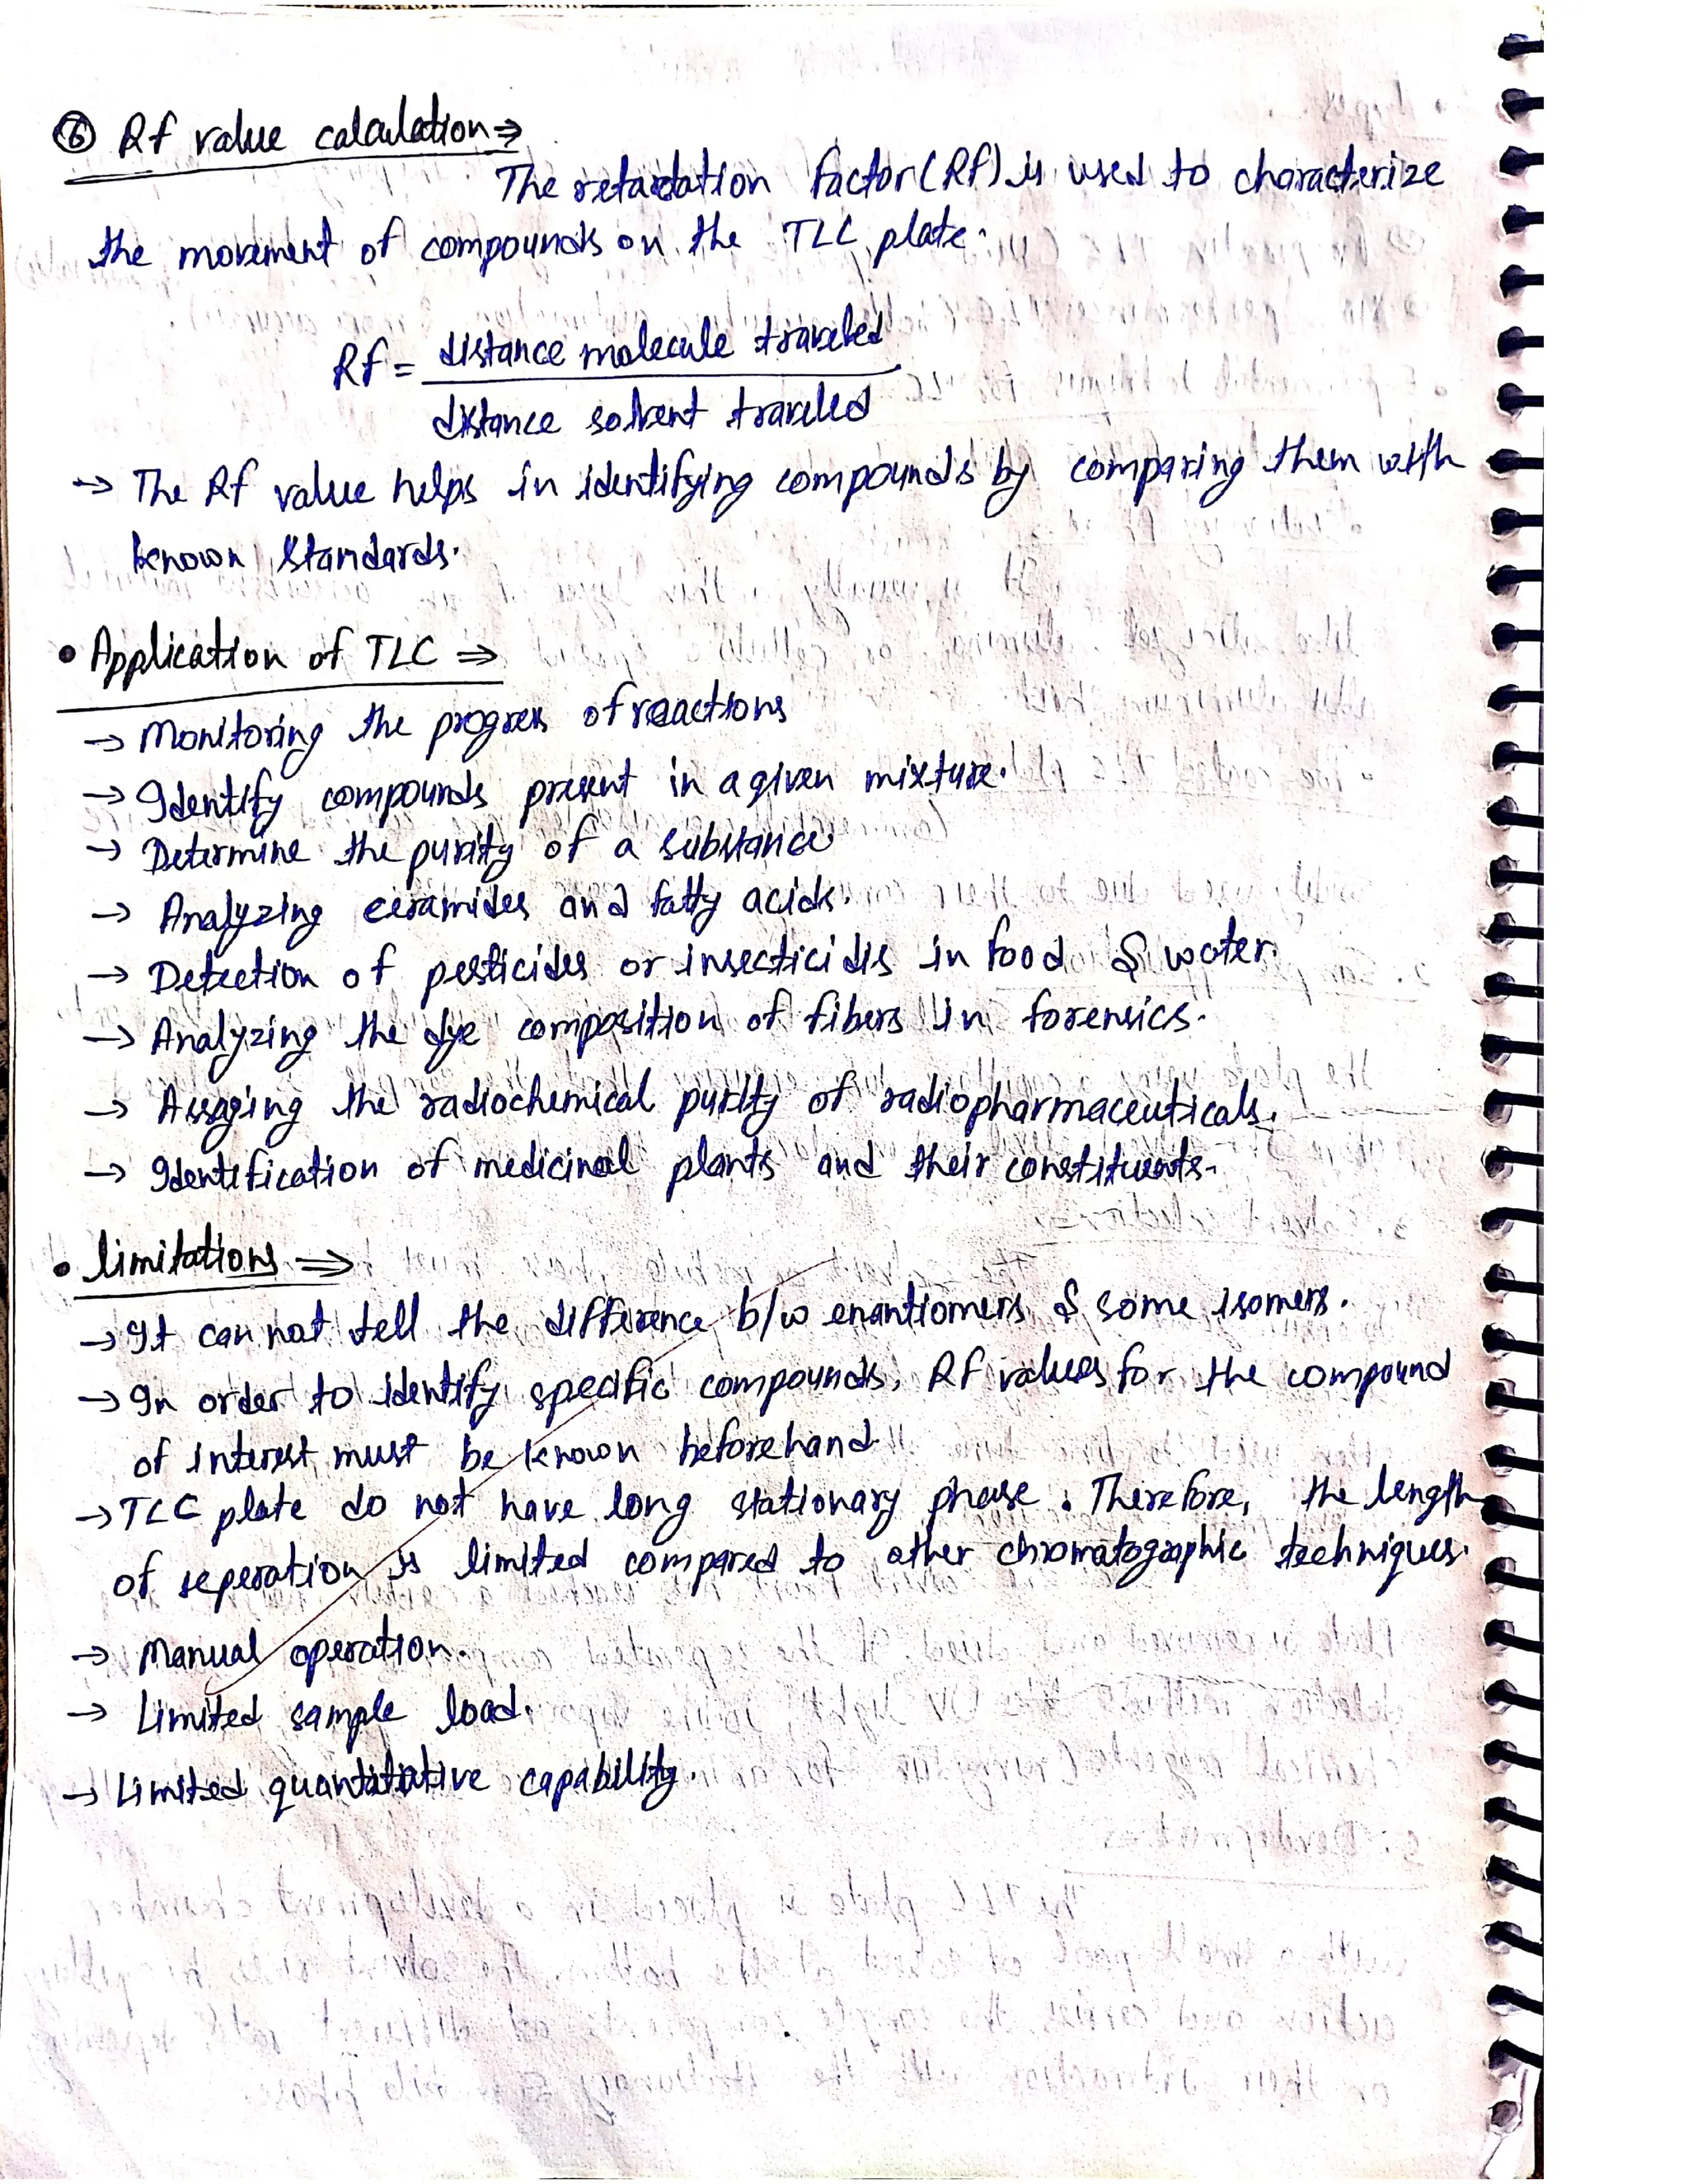 ⑥ Rf value calculation ⇒
The retardation factor (Rf) is used to characterize
the movement of compounds on the TLC plate.
Rf = distance molecule traveled
distance solvent traveled
→ The Rf value helps in identifying compounds by comparing them with
known standards.
• Application of TLC ⇒
→ Monitoring the progress of reactions
→ Identify compounds present in a given mixture.
→ Determine the purity of a substance
→ Analyzing ceramides and fatty acids.
→ Detection of pesticides or insecticides in food & water.
→ Analyzing the dye composition of fibers in forensics.
→ Assaying the radiochemical purity of radiopharmaceuticals.
→ Identification of medicinal plants and their constituents.
• limitations ⇒
→ It can not tell the difference b/w enantiomers & some isomers.
→ In order to identify specific compounds, Rf values for the compound
of interest must be known beforehand.
→ TLC plate do not have long stationary phase. Therefore, the length
of seperation is limited compared to other chromatographic techniques.
→ Manual operation.
→ Limited sample load.
→ Limited quantitative capability.